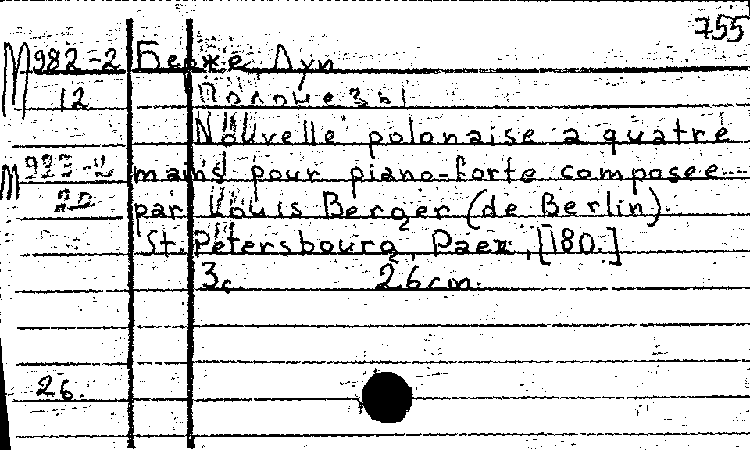 755
М982-2 Берже, Луи
12 Полонезы
Nouvelle polonaise a quatre
mains pour piano-forte composee
par Louis Berger (de Berlin).
St. Petersbourg, Paez, [180.]
3с. 26 cm.
26.